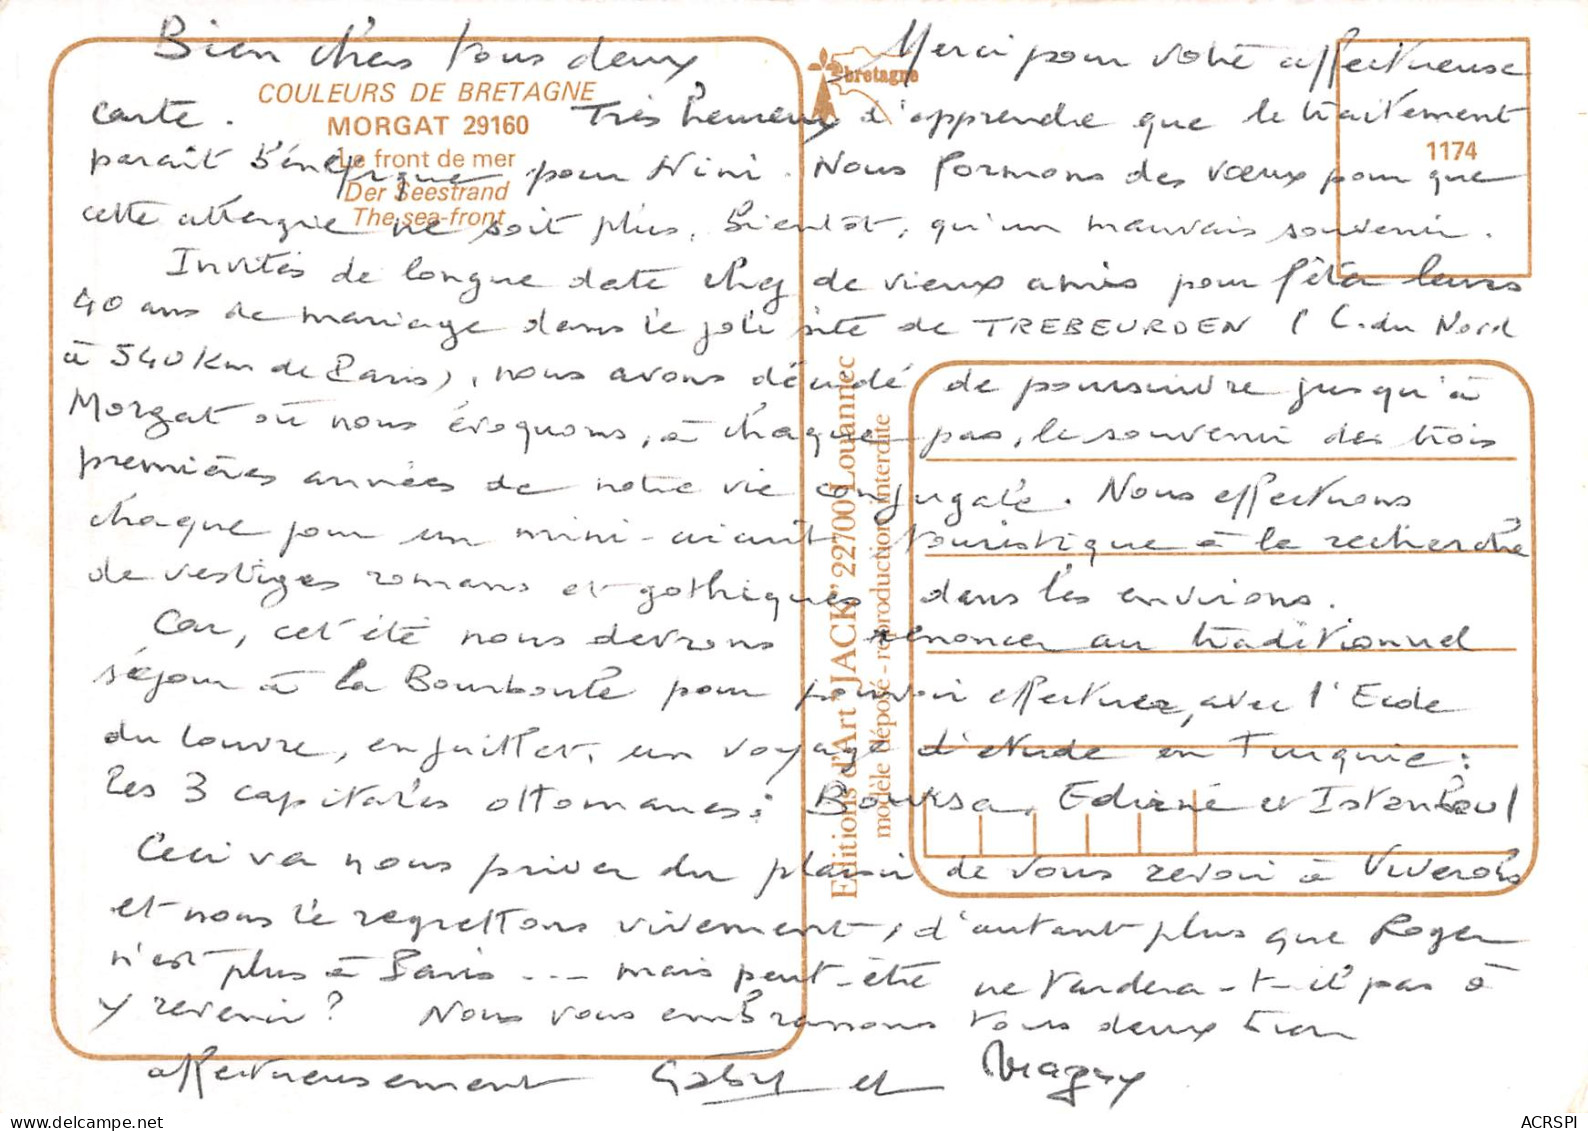 Bien chers tous deux Merci pour votre affectueuse
COULEURS DE BRETAGNE
MORGAT 29160
Le front de mer
Der Seestrand
The sea-front
bretagne
1174
carte. Très heureux d'apprendre que le traitement
paraît bénéfique pour Nini. Nous formons des vœux pour que
cette allergie ne soit plus, bientôt, qu'un mauvais souvenir.
Invités de longue date chez de vieux amis pour fêter leurs
40 ans de mariage dans le joli site de TREBEURDEN (C. du Nord
à 540 Km de Paris), nous avons décidé de poursuivre jusqu'à
Morgat où nous évoquons, à chaque pas, le souvenir des trois
premières années de notre vie conjugale. Nous effectuons
chaque jour un mini-circuit touristique à la recherche
de vestiges romans et gothiques dans les environs.
Car, cet été nous devrons renoncer au traditionnel
séjour à la Bourboule pour pouvoir effectuer, avec l'Ecole
du Louvre, en juillet, un voyage d'étude en Turquie :
les 3 capitales ottomanes : Boursa, Edirné et Istanboul
Ceci va nous priver du plaisir de vous revoir à Viverols
et nous le regrettons vivement, d'autant plus que Roger
n'est plus à Paris ... mais peut-être ne tardera-t-il pas à
y revenir ? Nous vous embrassons tous deux bien
affectueusement Gaby et Magy
Editions d'Art "JACK" 22700 Louannec
modèle déposé - reproduction interdite
ACRSPI